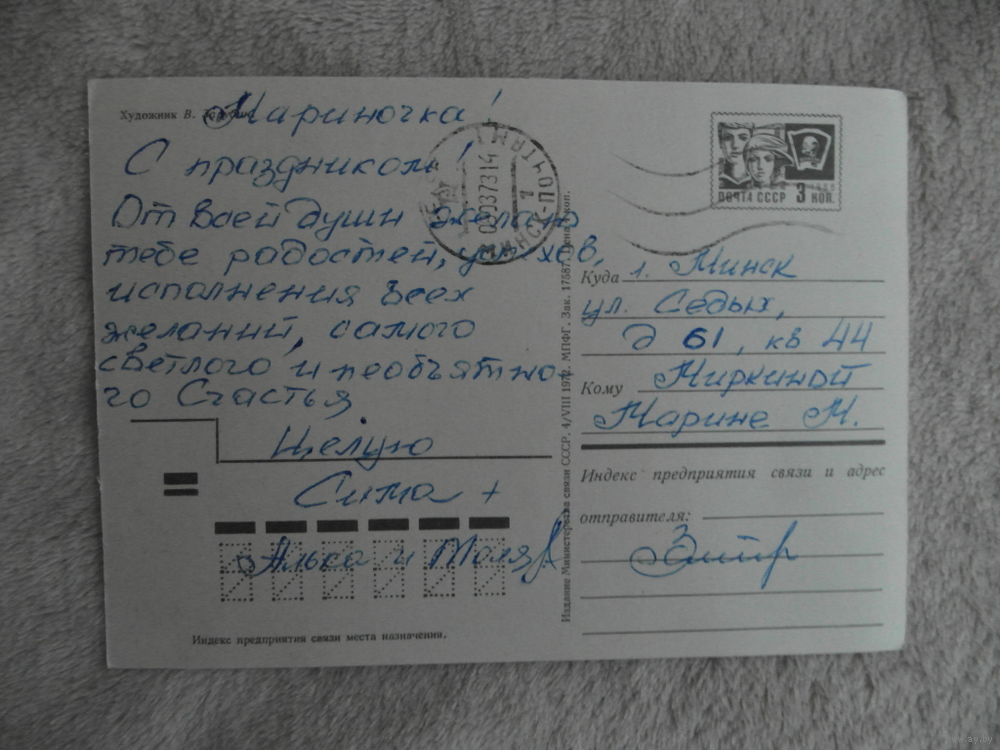 Художник В.
Мариночка!
С праздником!
От всей души желаю
тебе радостей, успехов,
исполнения всех
желаний, самого
светлого и необъятно-
го Счастья
Целую
Сима +
Алька и Толя
Индекс предприятия связи места назначения.
Издание Министерства связи СССР. 4/VIII 1972. МПФГ. Зак. 17587. Цена коп.
МИНСК-ПОЧТАМТ
ПОЧТА СССР 3 КОП.
1966
Куда г. Минск
ул. Седых,
д 61, кв 44
Кому Миркиной
Марине М.
Индекс предприятия связи и адрес
отправителя:
www.ay.by